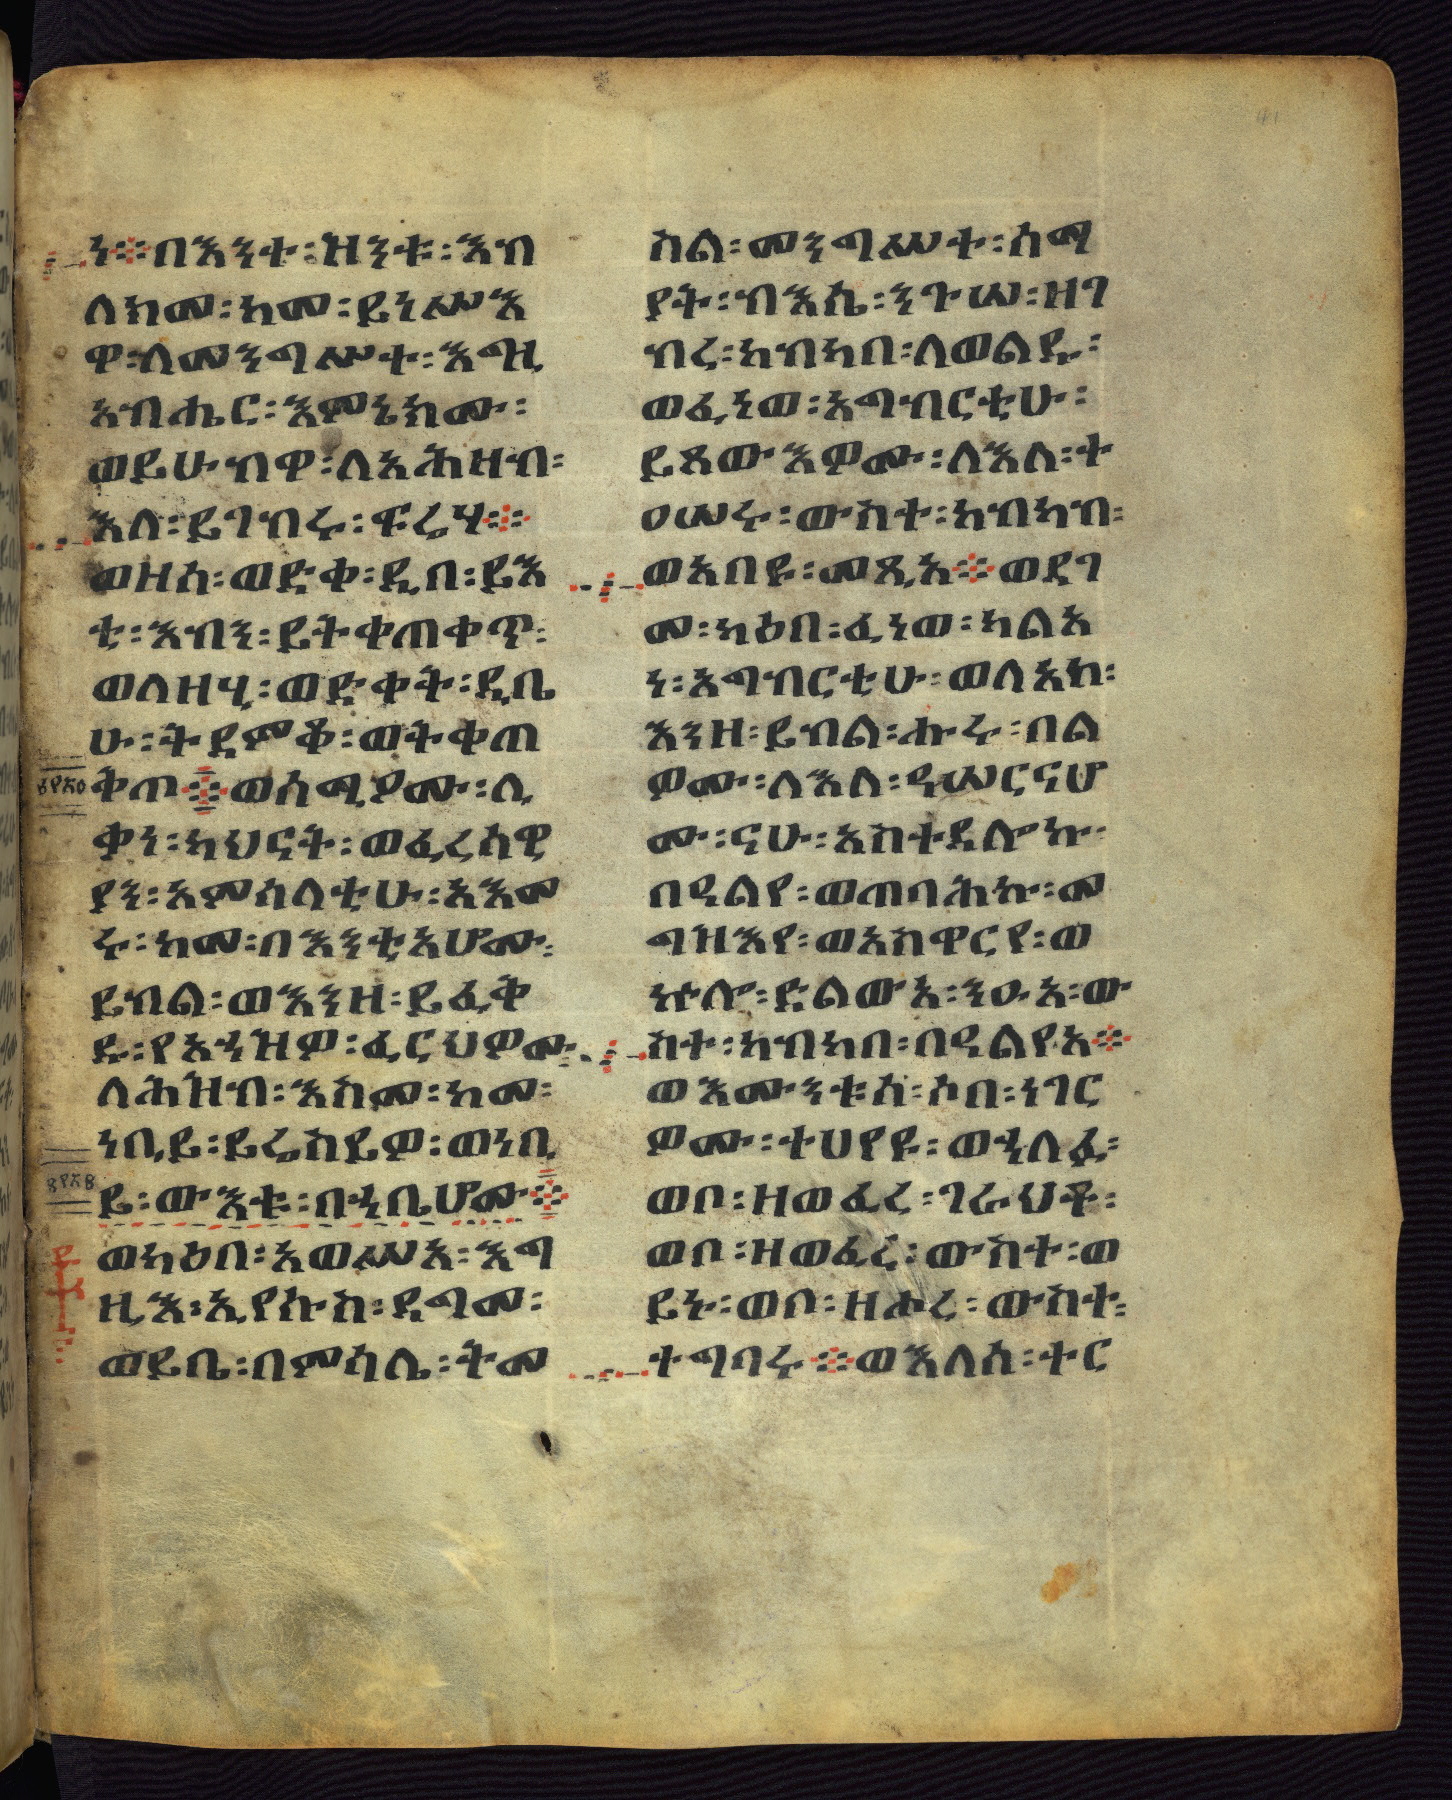 ን፨በእንተ፡ዝንቱ፡እብ
ለክሙ፡ከመ፡ይነሥእ
ዋ፡ለመንግሥተ፡እግዚ
አብሔር፡እምኔክሙ፡
ወይሁብዋ፡ለአሕዛብ፡
እለ፡ይገብሩ፡ፍሬሃ፨
ወዘሰ፡ወድቀ፡ዲበ፡ይእ
ቲ፡እብን፡ይትቀጠቀጥ፡
ወለዘሂ፡ወድቀት፡ዲቤ
ሁ፡ትደምቆ፡ወትቀጠ
፪፻፳፬
ቅጦ፨ወሰሚዖሙ፡ሊ
ቃነ፡ካህናት፡ወፈሪሳዊ
ያን፡አምሳላቲሁ፡አእመ
ሩ፡ከመ፡በእንቲአሆሙ፡
ይብል፡ወእንዘ፡ይፈቅ
ዱ፡የአኀዝዎ፡ፈርህዎሙ
ለሕዝብ፡እስመ፡ከመ፡
ነቢይ፡ይሬስይዎ፡ወነቢ
ይ፡ውእቱ፡በኀቤሆሙ፨
ወካዕበ፡አወሥአ፡እግ
ዚእ፡ኢየሱስ፡ዳግመ፡
ወይቤ፡በምሳሌ፡ትመ
ስል፡መንግሥተ፡ሰማ
ያት፡ብእሴ፡ንጉሠ፡ዘገ
ብረ፡ከብካበ፡ለወልዱ፡
ወፈነወ፡አግብርቲሁ፡
ይጸውእዎሙ፡ለእለ፡ተ
ዐሠሩ፡ውስተ፡ከብካብ፡
ወአበዩ፡መጺአ፨ወደገ
መ፡ካዕበ፡ፈነወ፡ካልአ
ነ፡አግብርቲሁ፡ወለአከ፡
እንዘ፡ይብል፡ሑሩ፡በል
ዎሙ፡ለእለ፡ዓሠርናሆ
ሙ፡ናሁ፡አስተዳሎኩ፡
በዓልየ፡ወጠባሕኩ፡መ
ግዝእየ፡ወአከዋርየ፡ወ
ኵሎ፡ድልውአ፡ንዑአ፡ው
ስተ፡ከብካበ፡በዓልየአ፨
ወእሙንቱሰ፡ሶበ፡ነገር
ዎሙ፡ተሀየዩ፡ወኀለፉ፡
ወቦ፡ዘወፈረ፡ገራህቶ፡
ወቦ፡ዘወፈረ፡ውስተ፡ወ
ይኑ፡ወቦ፡ዘሖረ፡ውስተ፡
ተግባሩ፨ወእለሰ፡ተር